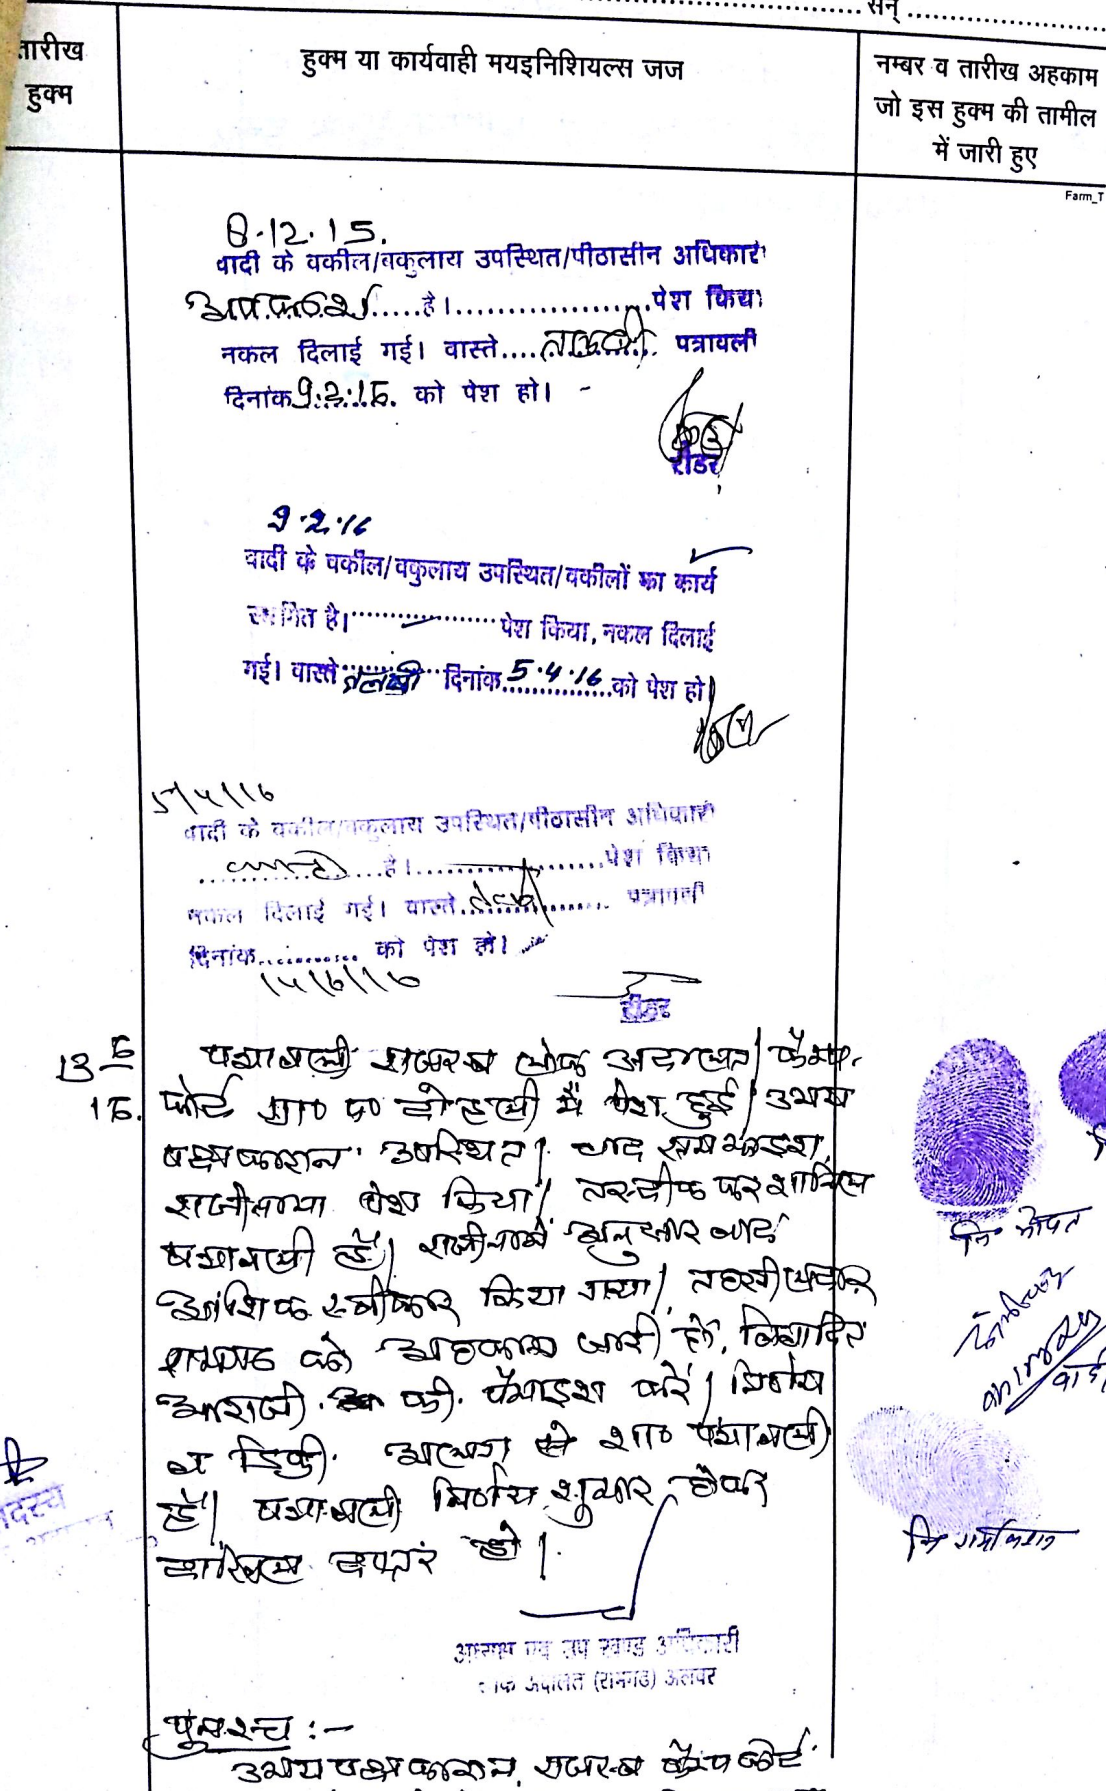 सन्
तारीख
हुक्म
हुक्म या कार्यवाही मयइनिशियल्स जज
नम्बर व तारीख अहकाम
जो इस हुक्म की तामील
में जारी हुए
Farm_T
8.12.15.
वादी के वकील/वकुलाय उपस्थित/पीठासीन अधिकारी
है। पेश किया
नकल दिलाई गई। वास्ते.... पत्रावली
दिनांक 9.2.16. को पेश हो।
रीडर
9.2.16
वादी के वकील/वकुलाय उपस्थित/वकीलों का कार्य
स्थगित है। पेश किया, नकल दिलाई
गई। वास्ते तलबी दिनांक 5.4.16 को पेश हो।
5/4/16
वादी के वकील/वकुलाय उपस्थित/पीठासीन अधिकारी
है। पेश किया
नकल दिलाई गई। वास्ते पत्रावली
दिनांक को पेश हो।
14/6/16
रीडर
13-6
16.
पत्रावली राजस्व लोक अदालत/कैम्प
कोर्ट ग्रा० पं० दोहली में पेश हुई। उभय
पक्षकारान उपस्थित। बाद समझाइश
राजीनामा पेश किया। तस्दीक कर शामिल
पत्रावली है। राजीनामे अनुसार वाद
आंशिक स्वीकार किया गया। तहसीलदार
रामगढ को अहकाम जारी हो, विवादित
आराजी की पैमाइश करें। निर्णय
व डिक्री अलग से शा० पत्रावली
है। पत्रावली निर्णय शुमार होकर
दाखिल दफ्तर हो।
नि० गोपत
वादी
अध्यक्ष एवं उप खण्ड अधिकारी
लोक अदालत (रामगढ) अलवर
पुनश्च :-
उभय पक्षकारान राजस्व कैम्प कोर्ट